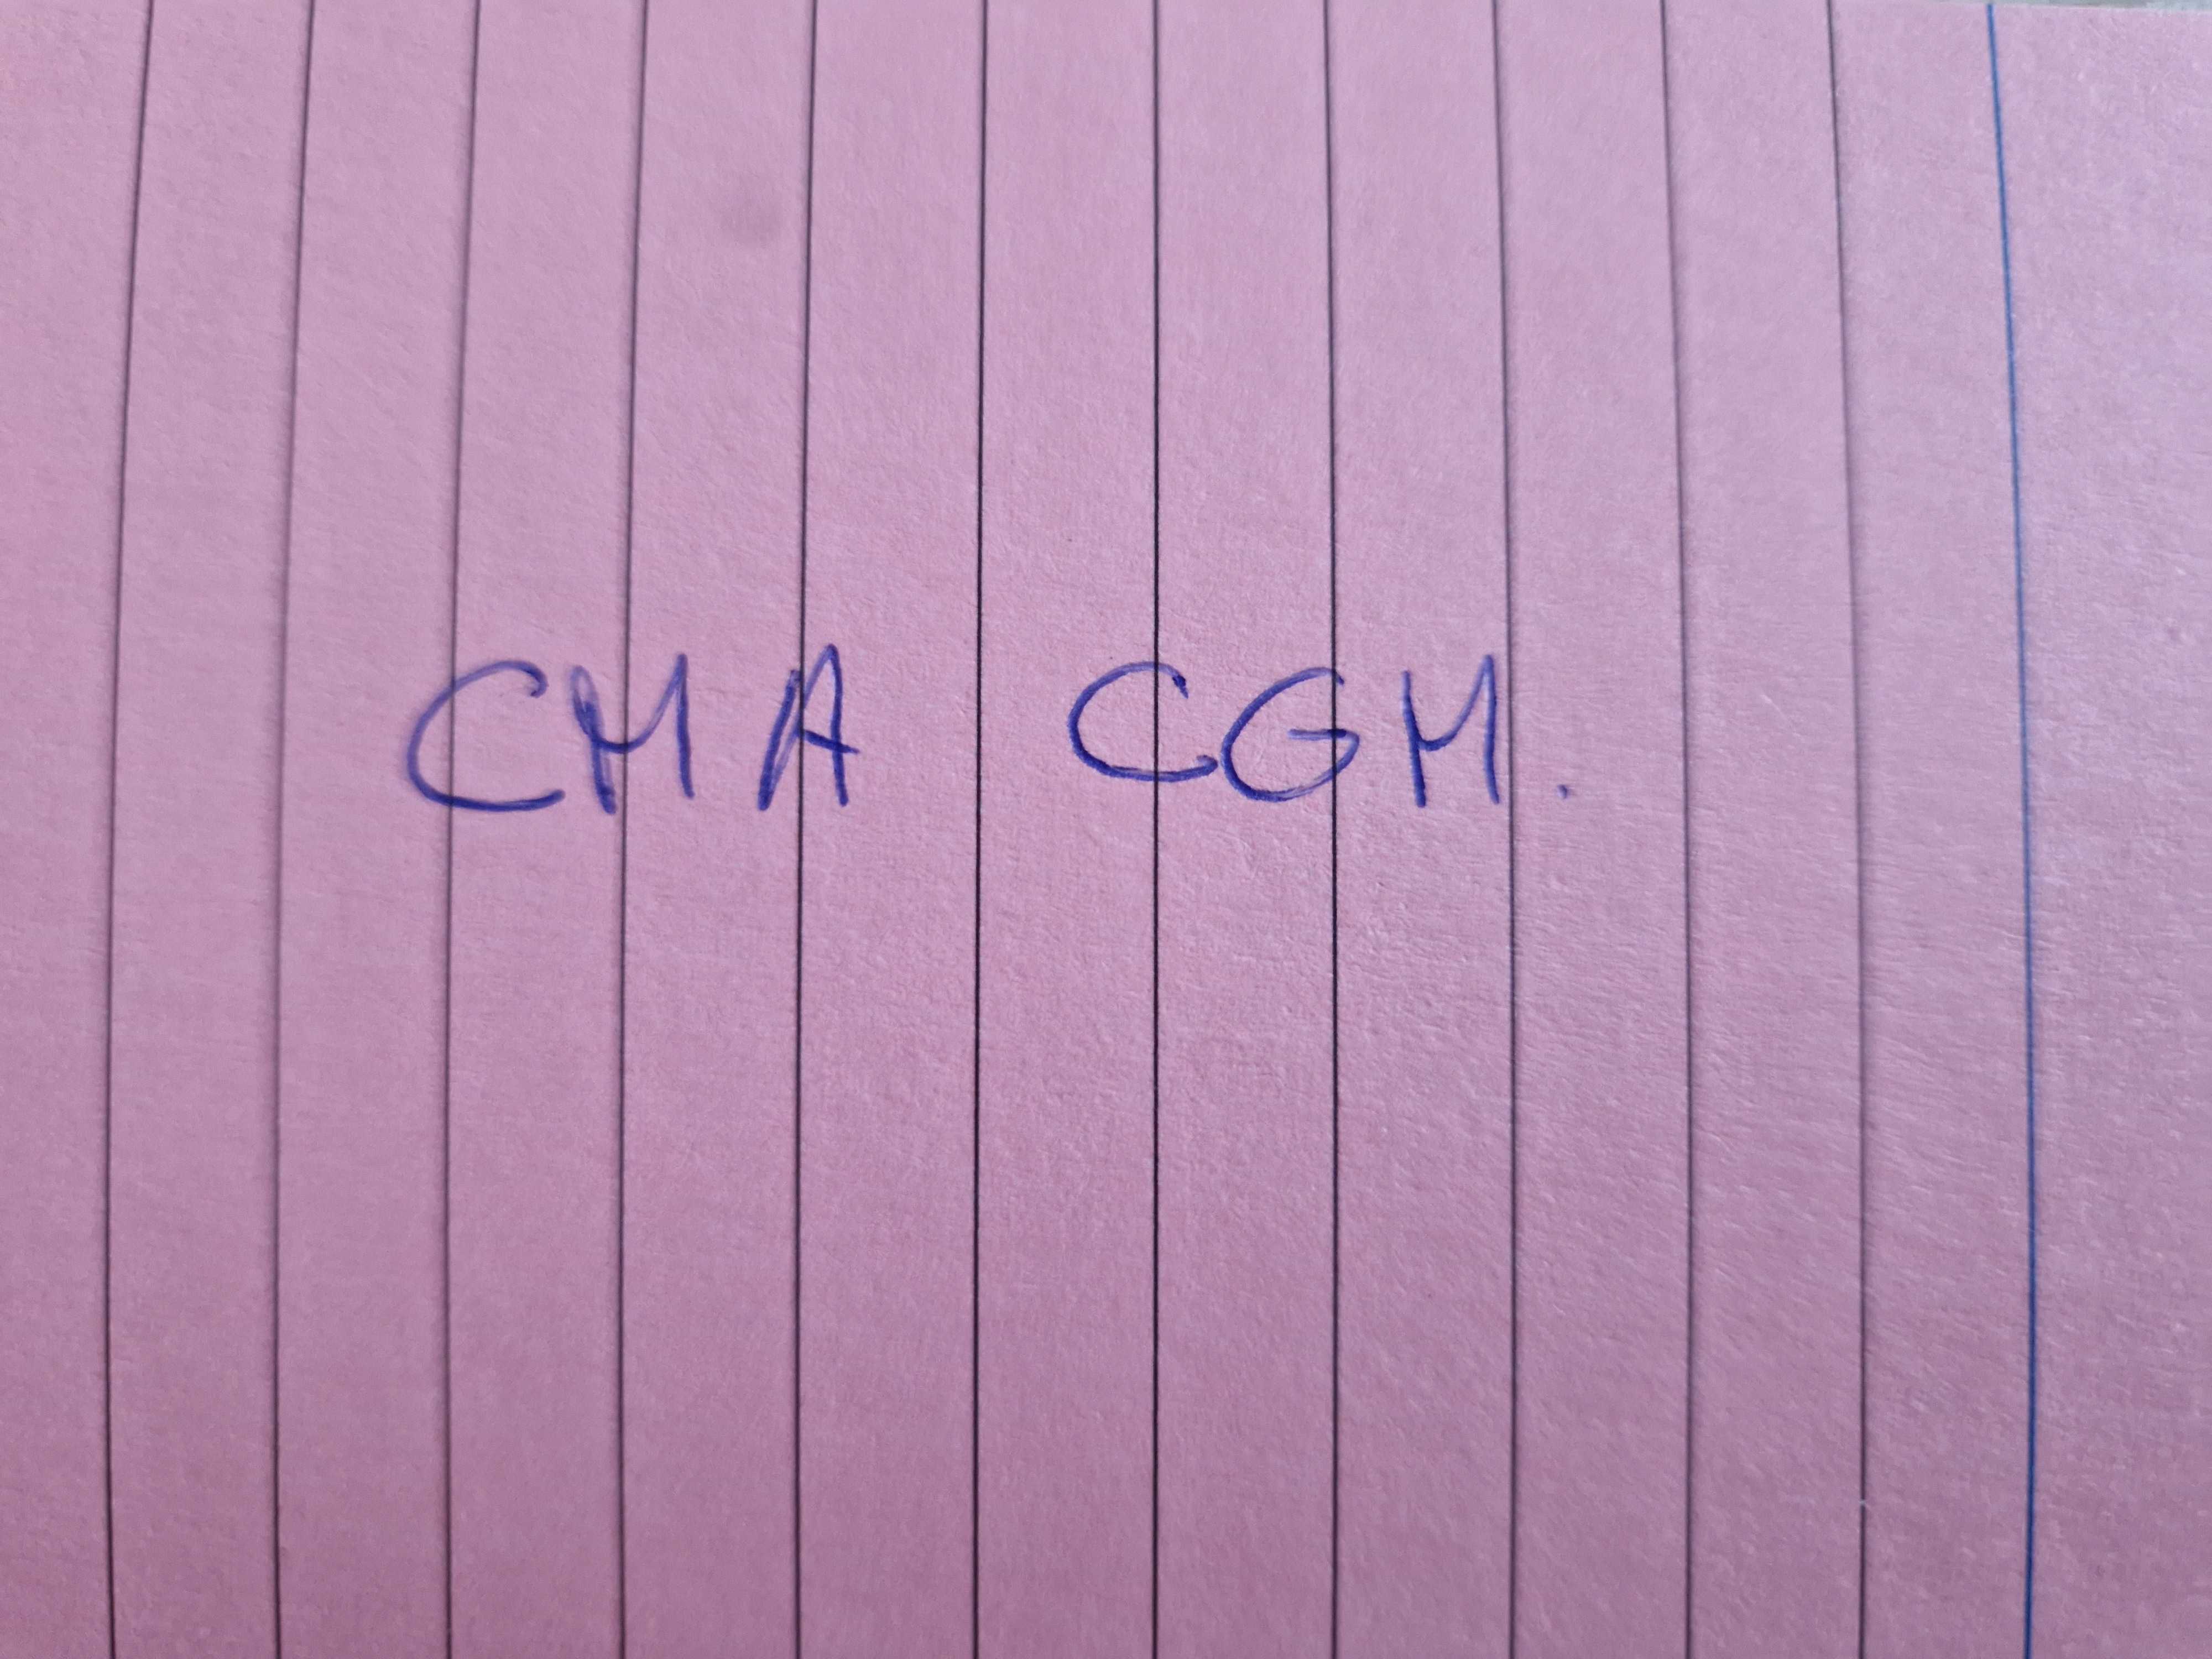 CMA CGM.